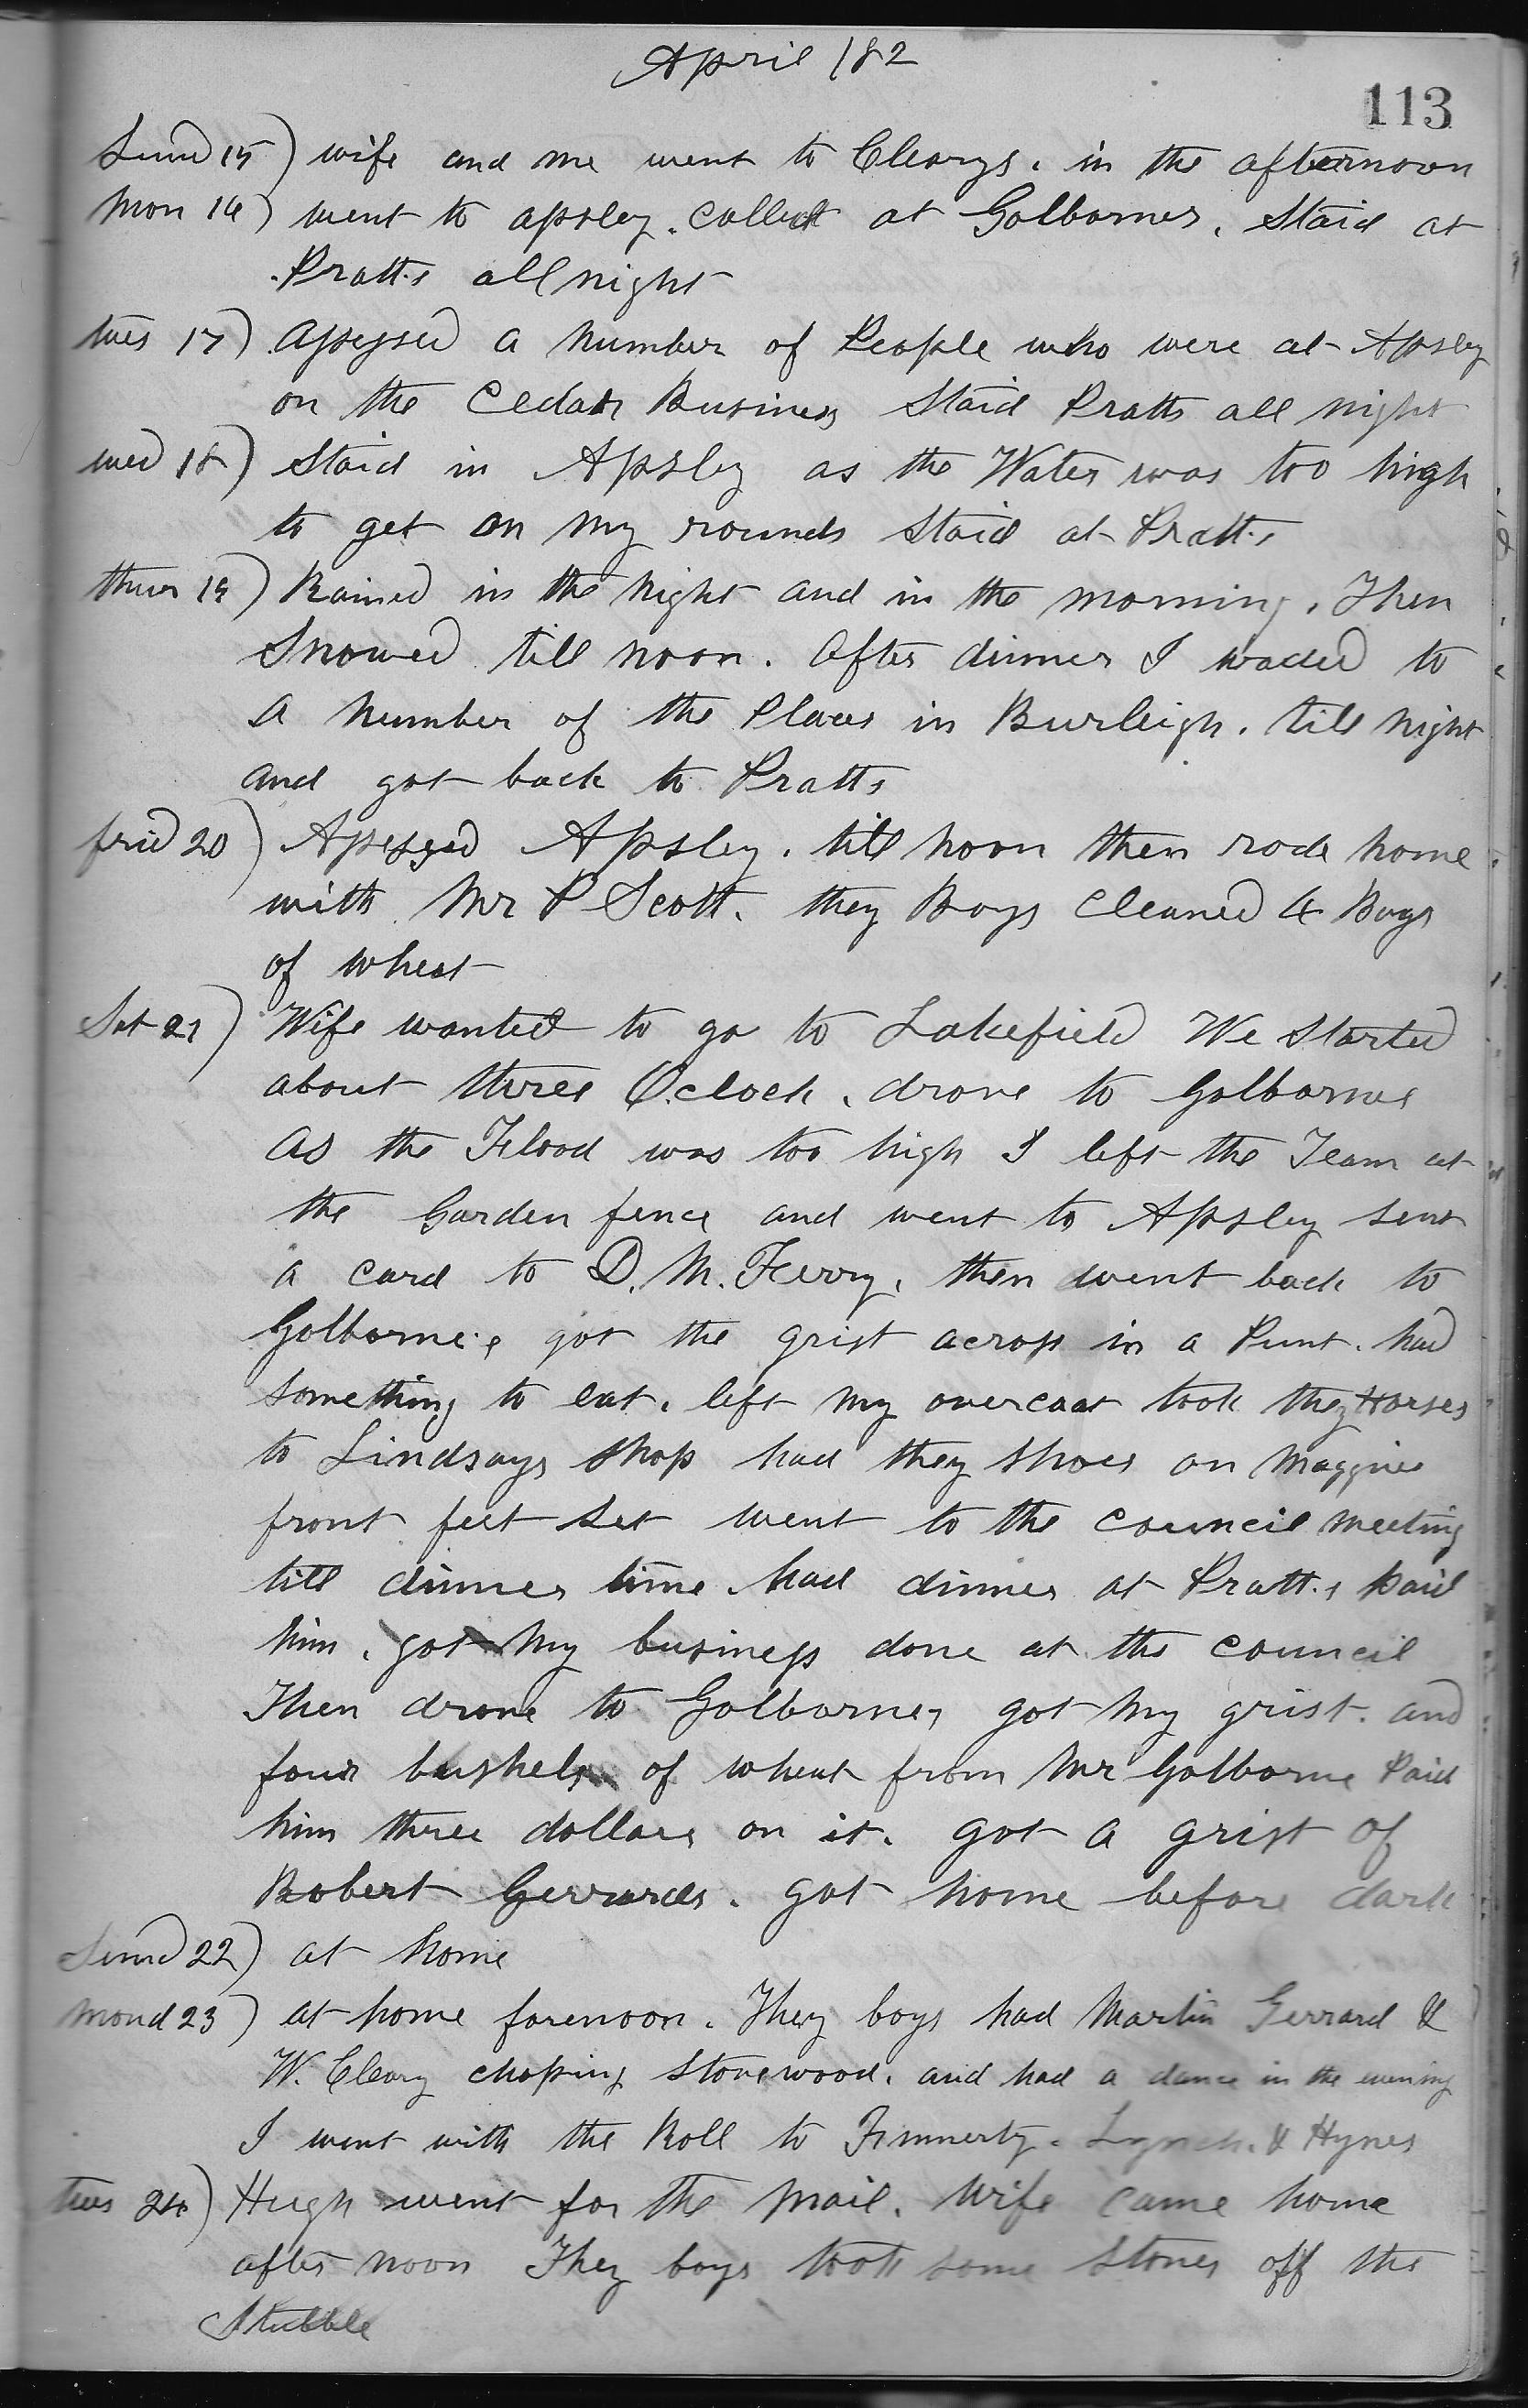 April 182
113
Sund 15) wife and me went to Clearys. in the afternoon
Mon 16) went to apsley. Collect at Golbornes. Staid at
Pratt's all night
tues 17) Assessed a number of People who were at Apsley
on the Cedar Business Staid Pratts all night
wed 18) Staid in Apsley as the Water was too high
to get on my rounds Staid at Pratt's
thurs 19) Rained in the night and in the morning. Then
Snowed till noon. After dinner I waded to
a number of the Places in Burleigh. till night
and got back to Pratts
frid 20) Assessed Apsley. till noon then rode home
with Mr P Scott. they Boys Cleaned 4 Bags
of wheat
Sat 21) Wife wanted to go to Lakefield We Started
about three O.clock. drove to Golbornes
as the Flood was too high I left the Team at
the Garden fence and went to Apsley sent
a card to D. M. Ferry. then went back to
Golborne's got the grist across in a Punt. had
something to eat. left my overcoat took they Horses
to Lindsays Shop had they Shoes on Maggies
front feet Set went to the council meeting
till dinner time. had dinner at Pratt's paid
him. got my business done at the council
Then drove to Golbornes got my grist. and
four bushels of wheat from Mr Golborne Paid
him three dollars on it. got a grist of
Robert Gerrards. got home before dark
Sund 22) at home
Mond 23) at home forenoon. They boys had Martin Gerrard &
W. Cleary choping Stovewood. and had a dance in the evening
I went with the Roll to Finnerty. Lynch. & Hynes
tues 24) Hugh went for the Mail. Wife came home
after noon They boys took some Stones off the
Stubble